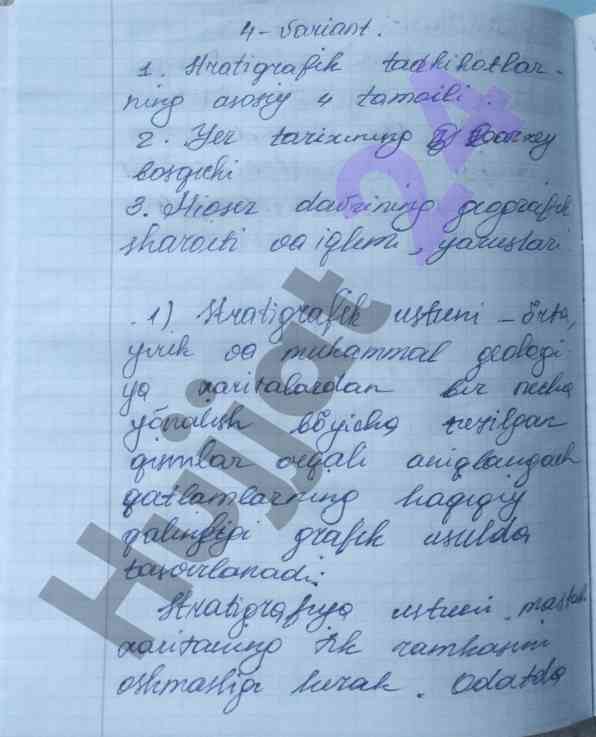 4-Variant.
1. Stratigrafik tadkikotlar-
ning asosiy 4 tamoili.
2. Yer tarixining
bosqichi
3. Miosen davrining geografik
sharoiti va iqlimi, yaruslari
1) Stratigrafik ustuni - õrta,
yirik va mukammal geologi
ya xaritalardan bir necha
yõnalish bõyicha kesilgan
qismlar orqali aniqlangach
qatlamlarning haqiqiy
qalinligi grafik usulda
tasvirlanadi.
Stratigrafiya ustuni mastab
xaritaning tik ramkasini
oshmasligi kerak. Odatda
Hujjat 24